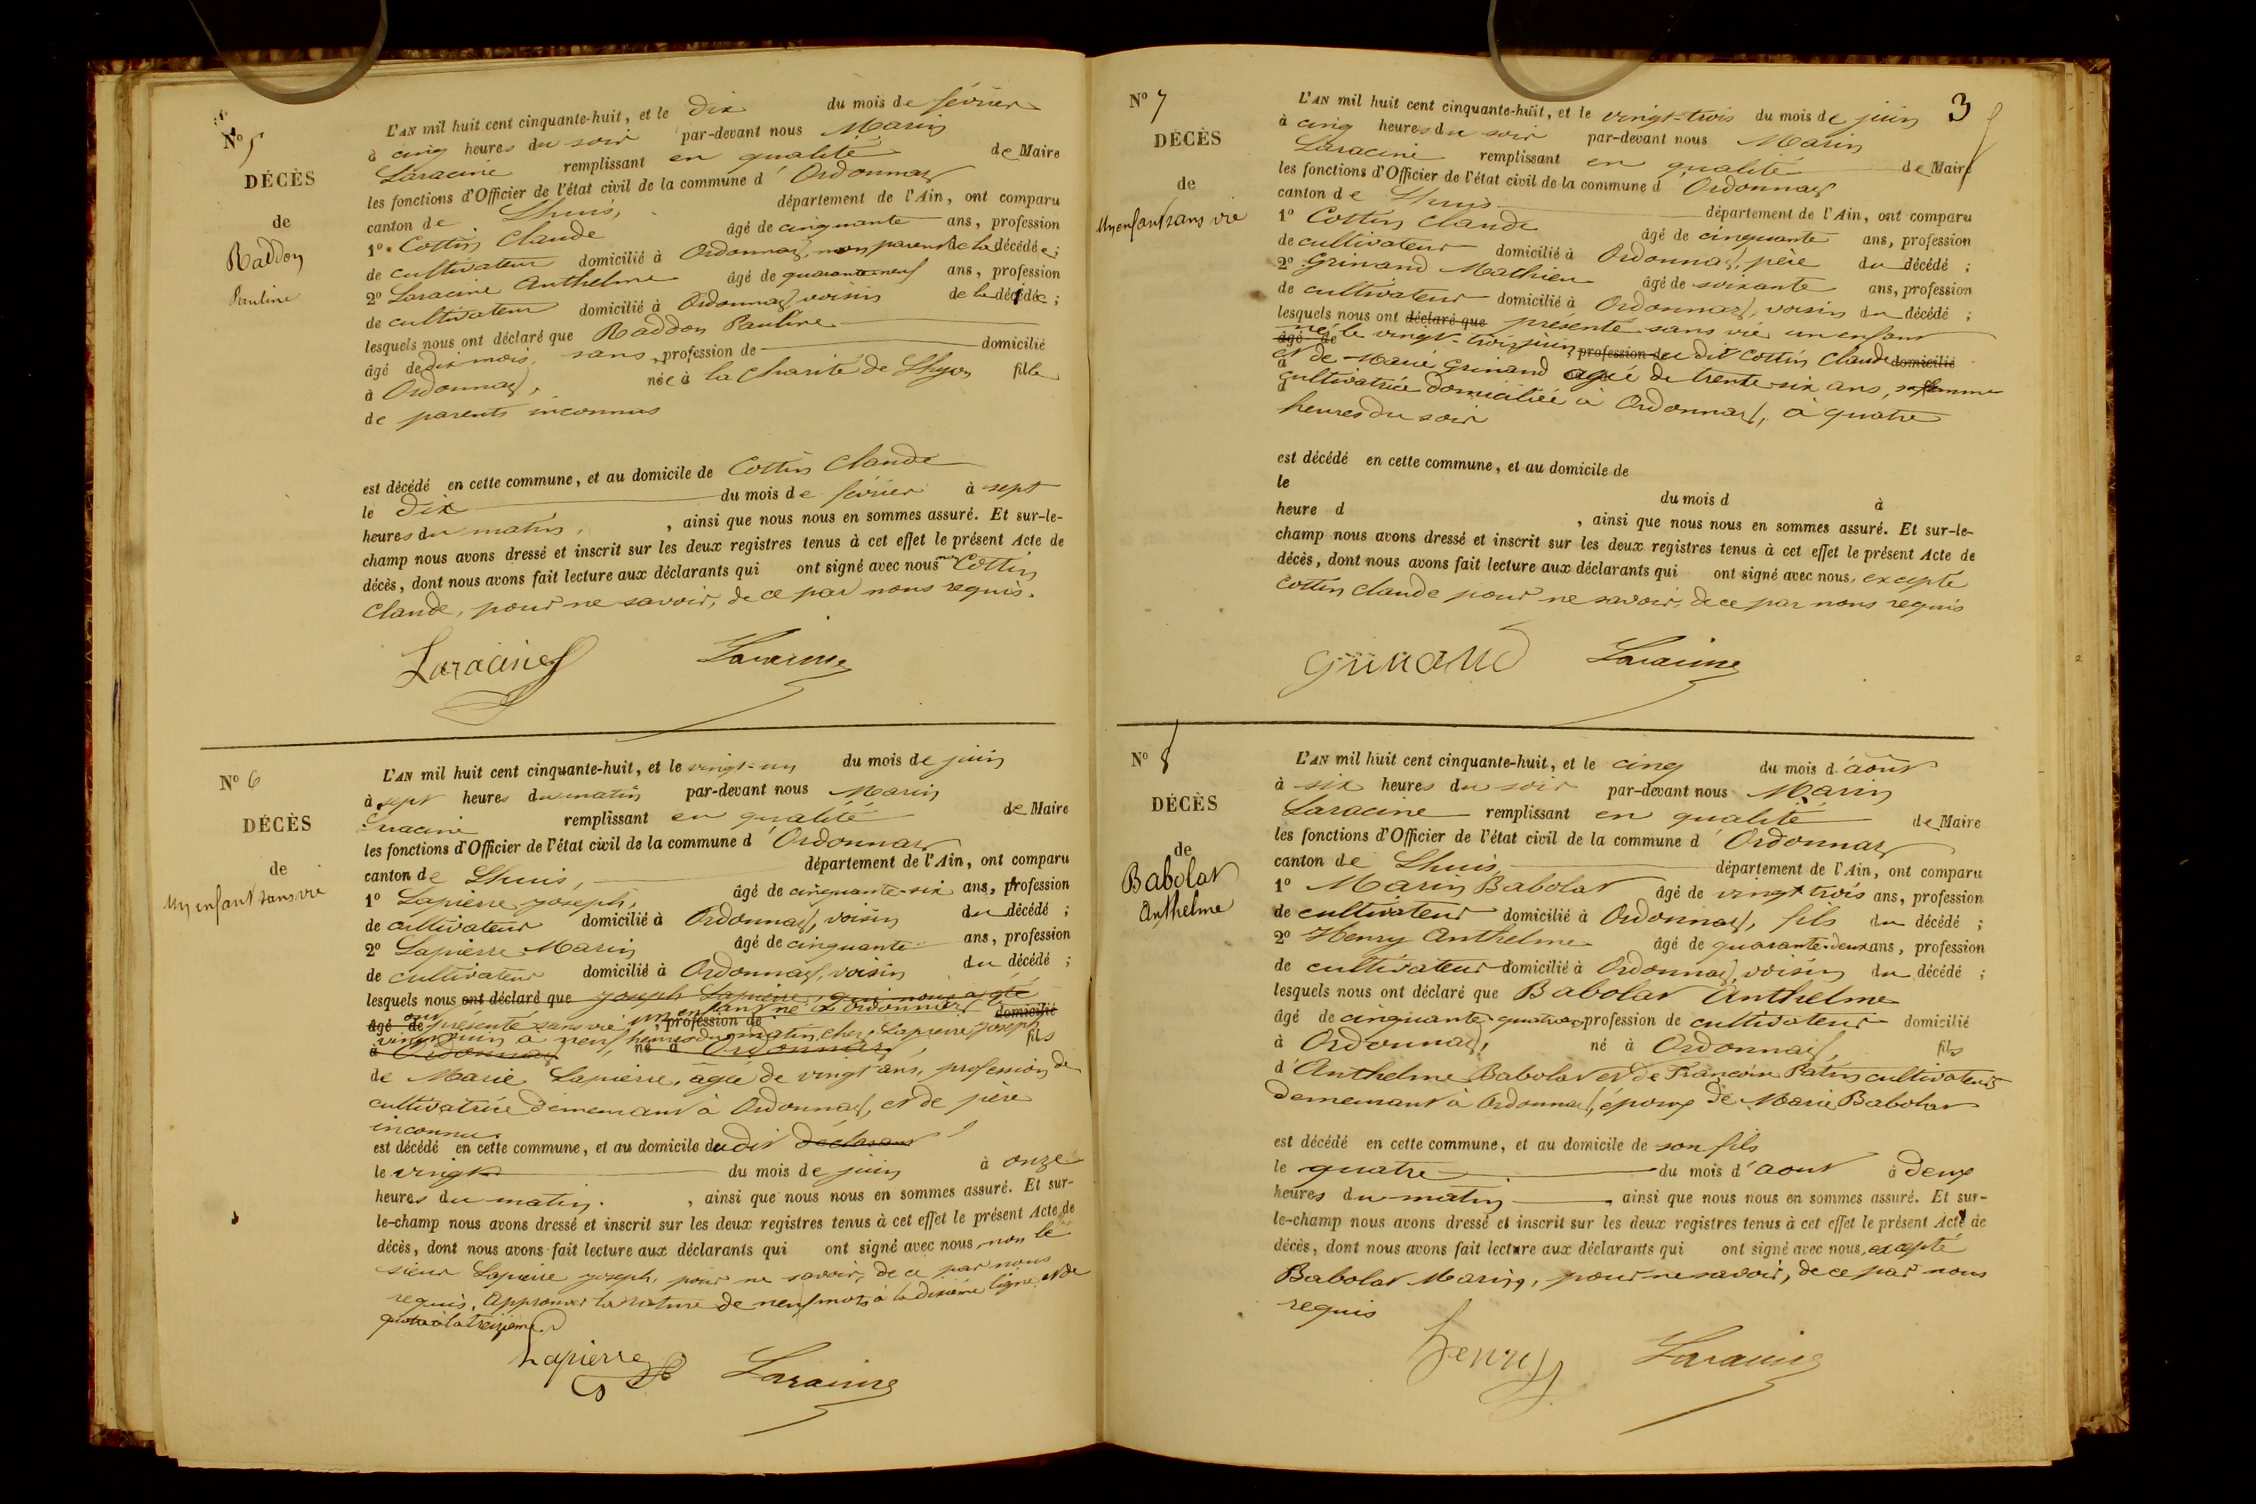 Nº 5
DÉCÈS
de
Raddon
Pauline
L'AN mil huit cent cinquante-huit, et le dix du mois de février
à cinq heures du soir par-devant nous Marin
Laracine remplissant en qualité de Maire
les fonctions d'Officier de l'état civil de la commune d'Ordonnaz
canton de Lhuis, département de l'Ain, ont comparu
1º Cottin Claude âgé de cinquante ans, profession
de cultivateur domicilié à Ordonnaz, non parent de la décédée;
2º Laracine Anthelme âgé de quarante-neuf ans, profession
de cultivateur domicilié à Ordonnaz, voisin de la décédée;
lesquels nous ont déclaré que Raddon Pauline
âgé de dix mois, sans profession de domicilié
à Ordonnaz, née à la charité de Lhyon fille
de parents inconnus
est décédé en cette commune, et au domicile de Cottin Claude
le dix du mois de février à sept
heures du matin, , ainsi que nous nous en sommes assuré. Et sur-le-
champ nous avons dressé et inscrit sur les deux registres tenus à cet effet le présent Acte de
décès, dont nous avons fait lecture aux déclarants qui ont signé avec nous non Cottin
Claude, pour ne savoir, de ce par nous requis.
Laracine Laracine
Nº 6
DÉCÈS
de
Un enfant sans vie
L'AN mil huit cent cinquante-huit, et le vingt-un du mois de juin
à sept heures du matin par-devant nous Marin
Laracine remplissant en qualité de Maire
les fonctions d'Officier de l'état civil de la commune d'Ordonnaz
canton de Lhuis, département de l'Ain, ont comparu
1º Lapierre joseph, âgé de cinquante-six ans, profession
de cultivateur domicilié à Ordonnaz, voisin du décédé;
2º Lapierre Marin âgé de cinquante ans, profession
de cultivateur domicilié à Ordonnaz, voisin du décédé;
lesquels nous ont déclaré que joseph Lapierre, qui nous a
ont un enfant né à Ordonnaz
âgé de présenté sans vie , profession de domicilié
vingt juin à neuf heures du matin, chez Lapierre joseph
à Ordonnaz né à Ordonnaz fils
de Marie Lapierre, âgée de vingt ans, profession de
cultivatrice demeurant à Ordonnaz, et de père
inconnu.
est décédé en cette commune, et au domicile du dit déclarant
le vingt du mois de juin à onze
heures du matin. , ainsi que nous nous en sommes assuré. Et sur-
le-champ nous avons dressé et inscrit sur les deux registres tenus à cet effet le présent Acte de
décès, dont nous avons fait lecture aux déclarants qui ont signé avec nous, non le
sieur Lapierre joseph, pour ne savoir, de ce par nous
requis. Approuvé la rature de neuf mots à la dixième ligne, et de
quatre à la treizième.
Lapierre Laracine
3
Nº 7
DÉCÈS
de
Un enfant sans vie
L'AN mil huit cent cinquante-huit, et le vingt-trois du mois de juin
à cinq heures du soir par-devant nous Marin
Laracine remplissant en qualité de Maire
les fonctions d'Officier de l'état civil de la commune d Ordonnaz
canton de Lhuis département de l'Ain, ont comparu
1º Cottin Claude âgé de cinquante ans, profession
de cultivateur domicilié à Ordonnaz, père du décédé;
2º Grinand Mathieu âgé de soixante ans, profession
de cultivateur domicilié à Ordonnaz, voisin du décédé;
lesquels nous ont déclaré que présenté sans vie un enfant
né le vingt-trois juin,
âgé de profession de du dit Cottin Claude domicilié
et de Marie Grinand agée de trente-six ans, sa femme
cultivatrice domiciliée à Ordonnaz, à quatre
heures du soir
est décédé en cette commune, et au domicile de
le du mois d à
heure d , ainsi que nous nous en sommes assuré. Et sur-le-
champ nous avons dressé et inscrit sur les deux registres tenus à cet effet le présent Acte de
décès, dont nous avons fait lecture aux déclarants qui ont signé avec nous, excepté
Cottin Claude pour ne savoir, de ce par nous requis
Grinand Laracine
Nº 8
DÉCÈS
de
Babolat
Anthelme
L'AN mil huit cent cinquante-huit, et le cinq du mois d'août
à six heures du soir par-devant nous Marin
Laracine remplissant en qualité de Maire
les fonctions d'Officier de l'état civil de la commune d'Ordonnaz
canton de Lhuis, département de l'Ain, ont comparu
1º Marin Babolat âgé de vingt trois ans, profession
de cultivateur domicilié à Ordonnaz, fils du décédé;
2º Henry Anthelme âgé de quarante-deux ans, profession
de cultivateur domicilié à Ordonnaz, voisin du décédé;
lesquels nous ont déclaré que Babolat Anthelme
âgé de cinquante quatre ans profession de cultivateur domicilié
à Ordonnaz, né à Ordonnaz, fils
d'Anthelme Babolat et de Françoise Patin cultivateurs
demeurant à Ordonnaz, époux de Marie Babolat
est décédé en cette commune, et au domicile de son fils
le quatre du mois d'aout à deux
heures du matin , ainsi que nous nous en sommes assuré. Et sur-
le-champ nous avons dressé et inscrit sur les deux registres tenus à cet effet le présent Acte de
décès, dont nous avons fait lecture aux déclarants qui ont signé avec nous, excepté
Babolat Marin, pour ne savoir, de ce par nous
requis
Henry Laracine